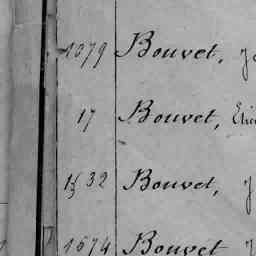 1079 Bouvet, J
17 Bouvet, Etie
1532 Bouvet, J
1574 Bouvet J